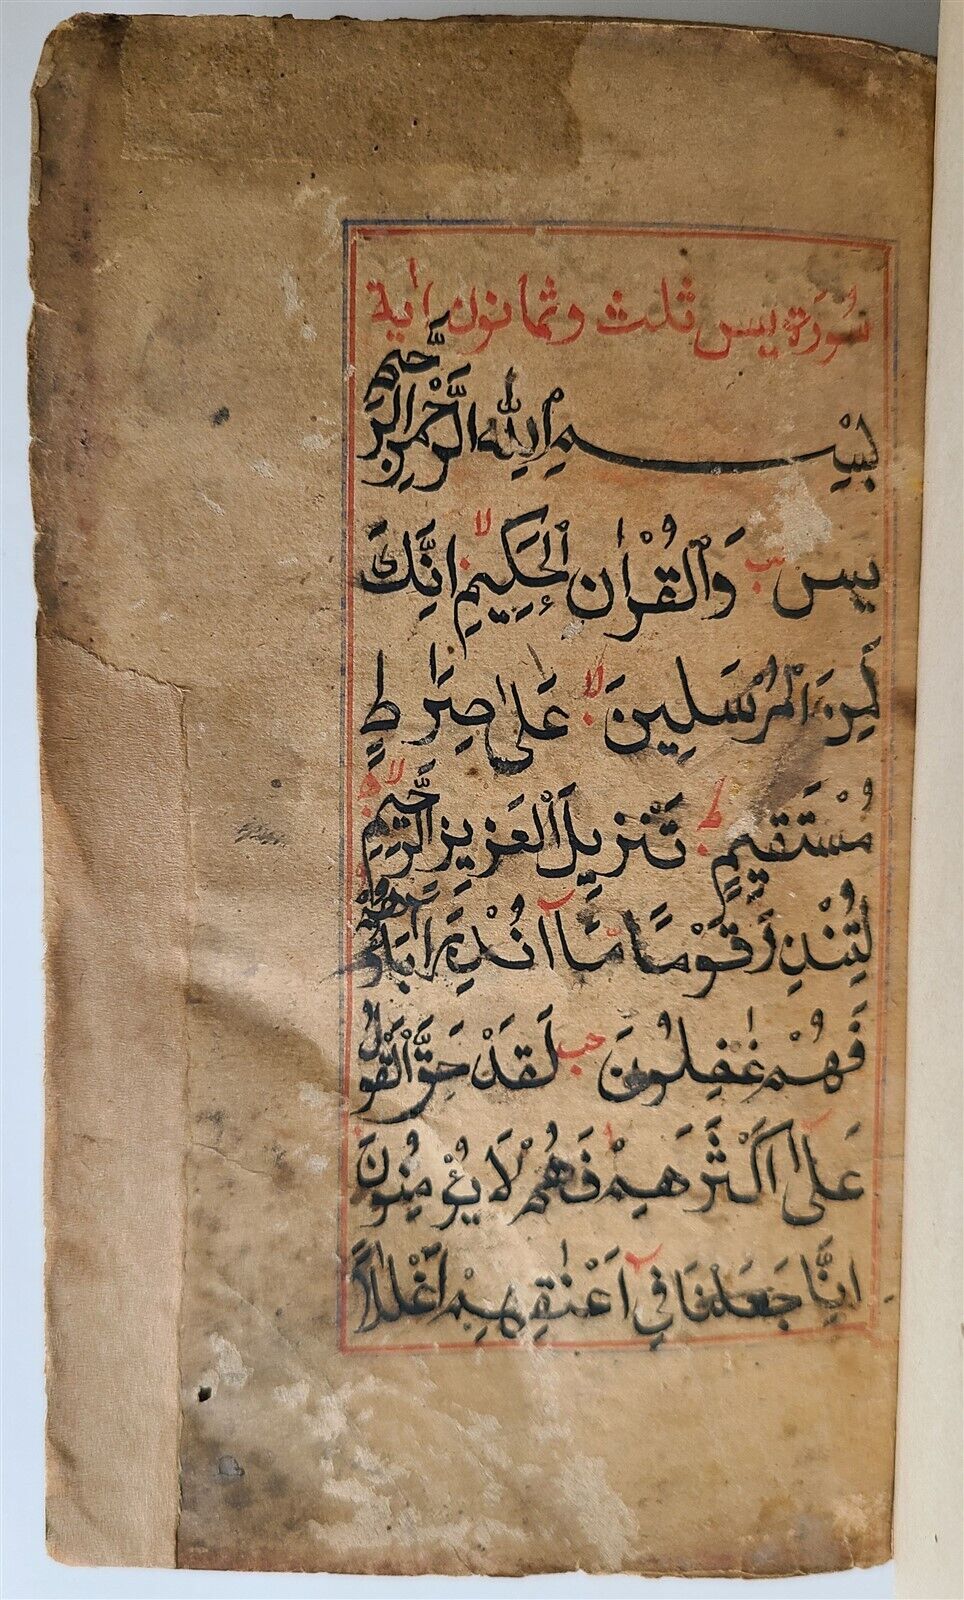 سُورَة يس ثلث وثمانون اٰية
بِسْمِ اللهِ الرَّحْمٰنِ الرَّحِيمِ
يس حب وَالْقُرْاٰنِ الْحَكِيمِ لا اِنَّكَ
لَمِنَ الْمُرْسَلِينَ لا عَلٰى صِرَاطٍ
مُسْتَقِيمٍ ط تَنْزِيلَ الْعَزِيزِ الرَّحِيمِ لا
لِتُنْذِرَ قَوْمًا مَّآ اُنْذِرَ اٰبَاؤُهُمْ
فَهُمْ غٰفِلُونَ حب لَقَدْ حَقَّ الْقَوْلُ
عَلٰى اَكْثَرِهِمْ فَهُمْ لَا يُؤْمِنُونَ
اِنَّا جَعَلْنَا فِي اَعْنٰقِهِمْ اَغْلٰلًا